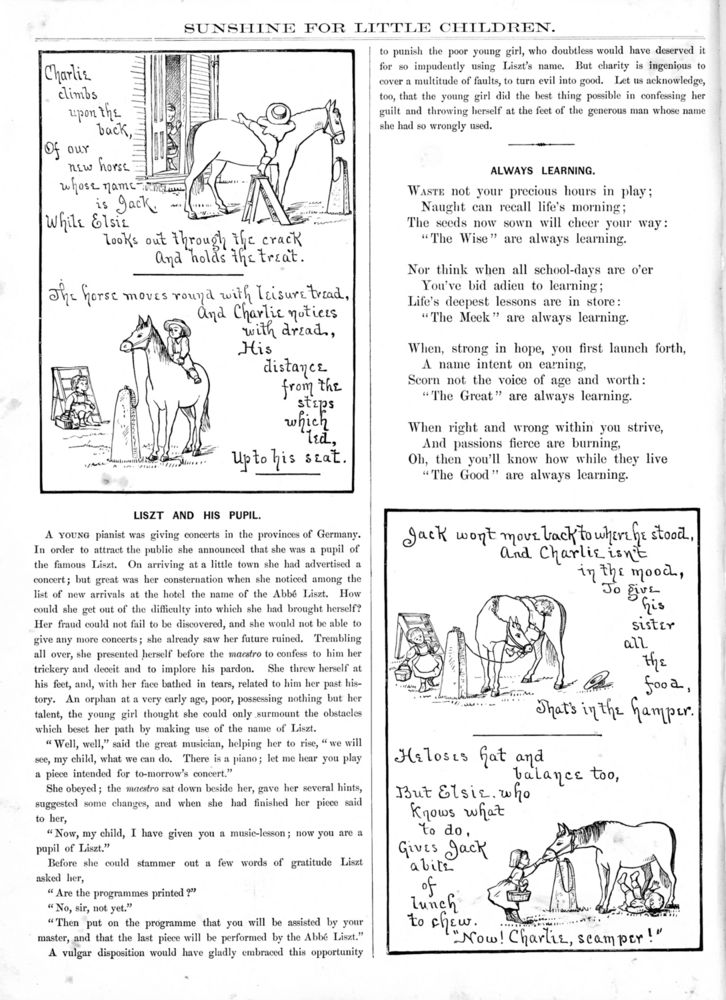 SUNSHINE FOR LITTLE CHILDREN.
Charlie
climbs
upon the
back,
Of our
new horse
whose name
is Jack,
While Elsie
looks out through the crack
And holds the treat.
The horse moves round with leisure tread,
And Charlie notices
with dread,
His
distance
from the
steps
which
led,
Up to his seat.
LISZT AND HIS PUPIL.
A YOUNG pianist was giving concerts in the provinces of Germany.
In order to attract the public she announced that she was a pupil of
the famous Liszt. On arriving at a little town she had advertised a
concert; but great was her consternation when she noticed among the
list of new arrivals at the hotel the name of the Abbé Liszt. How
could she get out of the difficulty into which she had brought herself?
Her fraud could not fail to be discovered, and she would not be able to
give any more concerts; she already saw her future ruined. Trembling
all over, she presented herself before the maestro to confess to him her
trickery and deceit and to implore his pardon. She threw herself at
his feet, and, with her face bathed in tears, related to him her past his-
tory. An orphan at a very early age, poor, possessing nothing but her
talent, the young girl thought she could only surmount the obstacles
which beset her path by making use of the name of Liszt.
"Well, well," said the great musician, helping her to rise, "we will
see, my child, what we can do. There is a piano; let me hear you play
a piece intended for to-morrow's concert."
She obeyed; the maestro sat down beside her, gave her several hints,
suggested some changes, and when she had finished her piece said
to her,
"Now, my child, I have given you a music-lesson; now you are a
pupil of Liszt."
Before she could stammer out a few words of gratitude Liszt
asked her,
"Are the programmes printed?"
"No, sir, not yet."
"Then put on the programme that you will be assisted by your
master, and that the last piece will be performed by the Abbé Liszt."
A vulgar disposition would have gladly embraced this opportunity
to punish the poor young girl, who doubtless would have deserved it
for so impudently using Liszt's name. But charity is ingenious to
cover a multitude of faults, to turn evil into good. Let us acknowledge,
too, that the young girl did the best thing possible in confessing her
guilt and throwing herself at the feet of the generous man whose name
she had so wrongly used.
ALWAYS LEARNING.
WASTE not your precious hours in play;
Naught can recall life's morning;
The seeds now sown will cheer your way:
"The Wise" are always learning.
Nor think when all school-days are o'er
You've bid adieu to learning;
Life's deepest lessons are in store:
"The Meek" are always learning.
When, strong in hope, you first launch forth,
A name intent on earning,
Scorn not the voice of age and worth:
"The Great" are always learning.
When right and wrong within you strive,
And passions fierce are burning,
Oh, then you'll know how while they live
"The Good" are always learning.
Jack wont move back to where he stood,
And Charlie isn't
in the mood,
To give
his
sister
all
the
food,
That's in the hamper.
He loses hat and
balance too,
But Elsie, who
knows what
to do,
Gives Jack
a bite
of
lunch
to chew.
"Now! Charlie, scamper!"